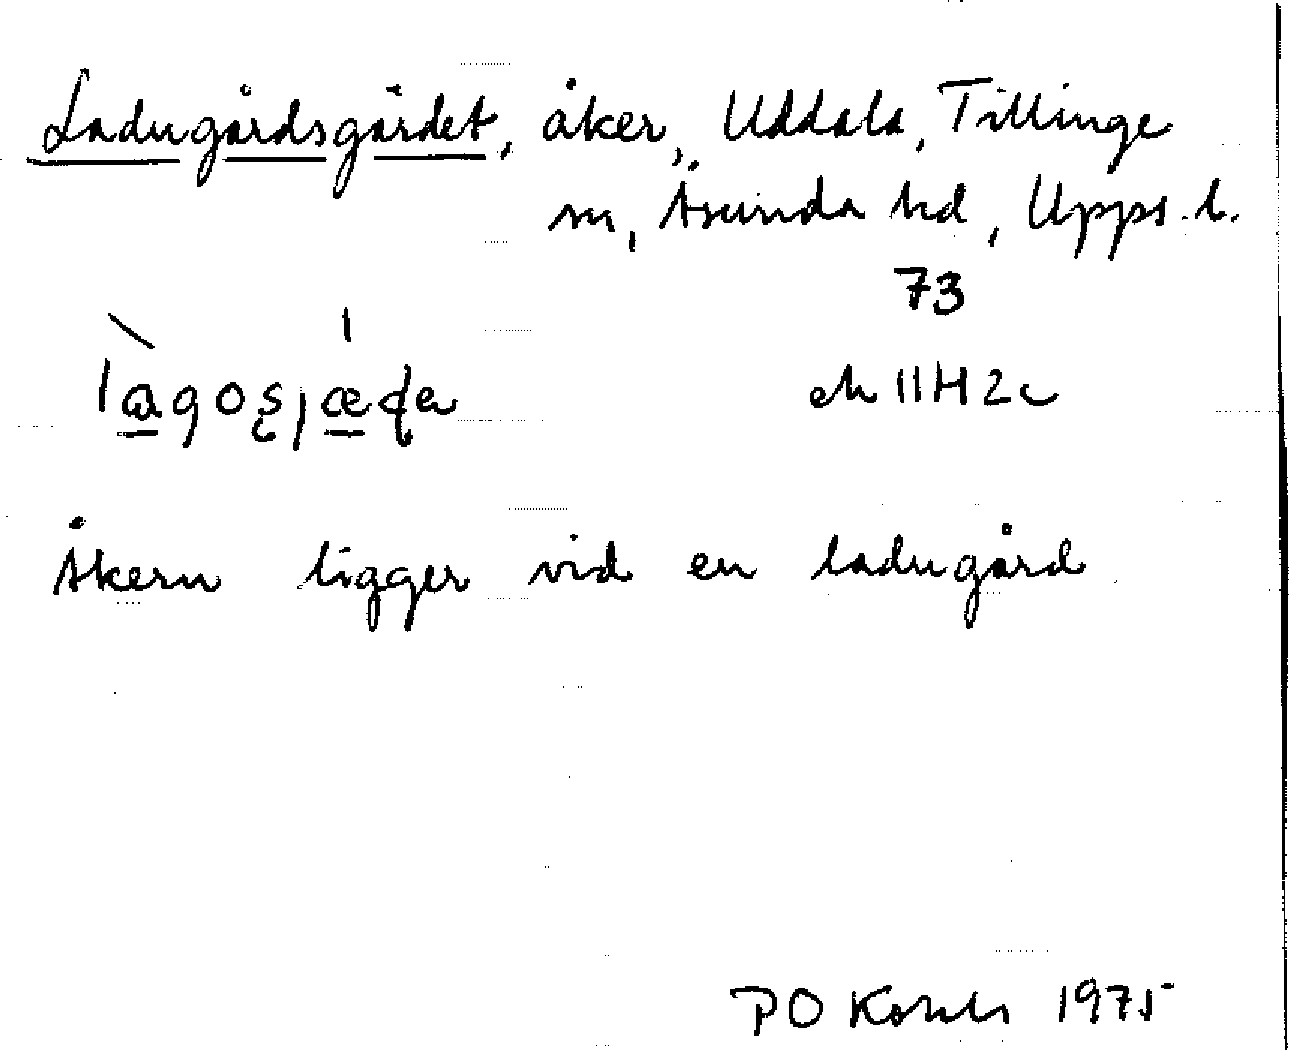 Ladugårdsgärdet, åker, Uddala, Tillinge
sn, Åsunda hd, Upps. l.
73
ek 11H 2c
Åkern ligger vid en ladugård
PO 1975